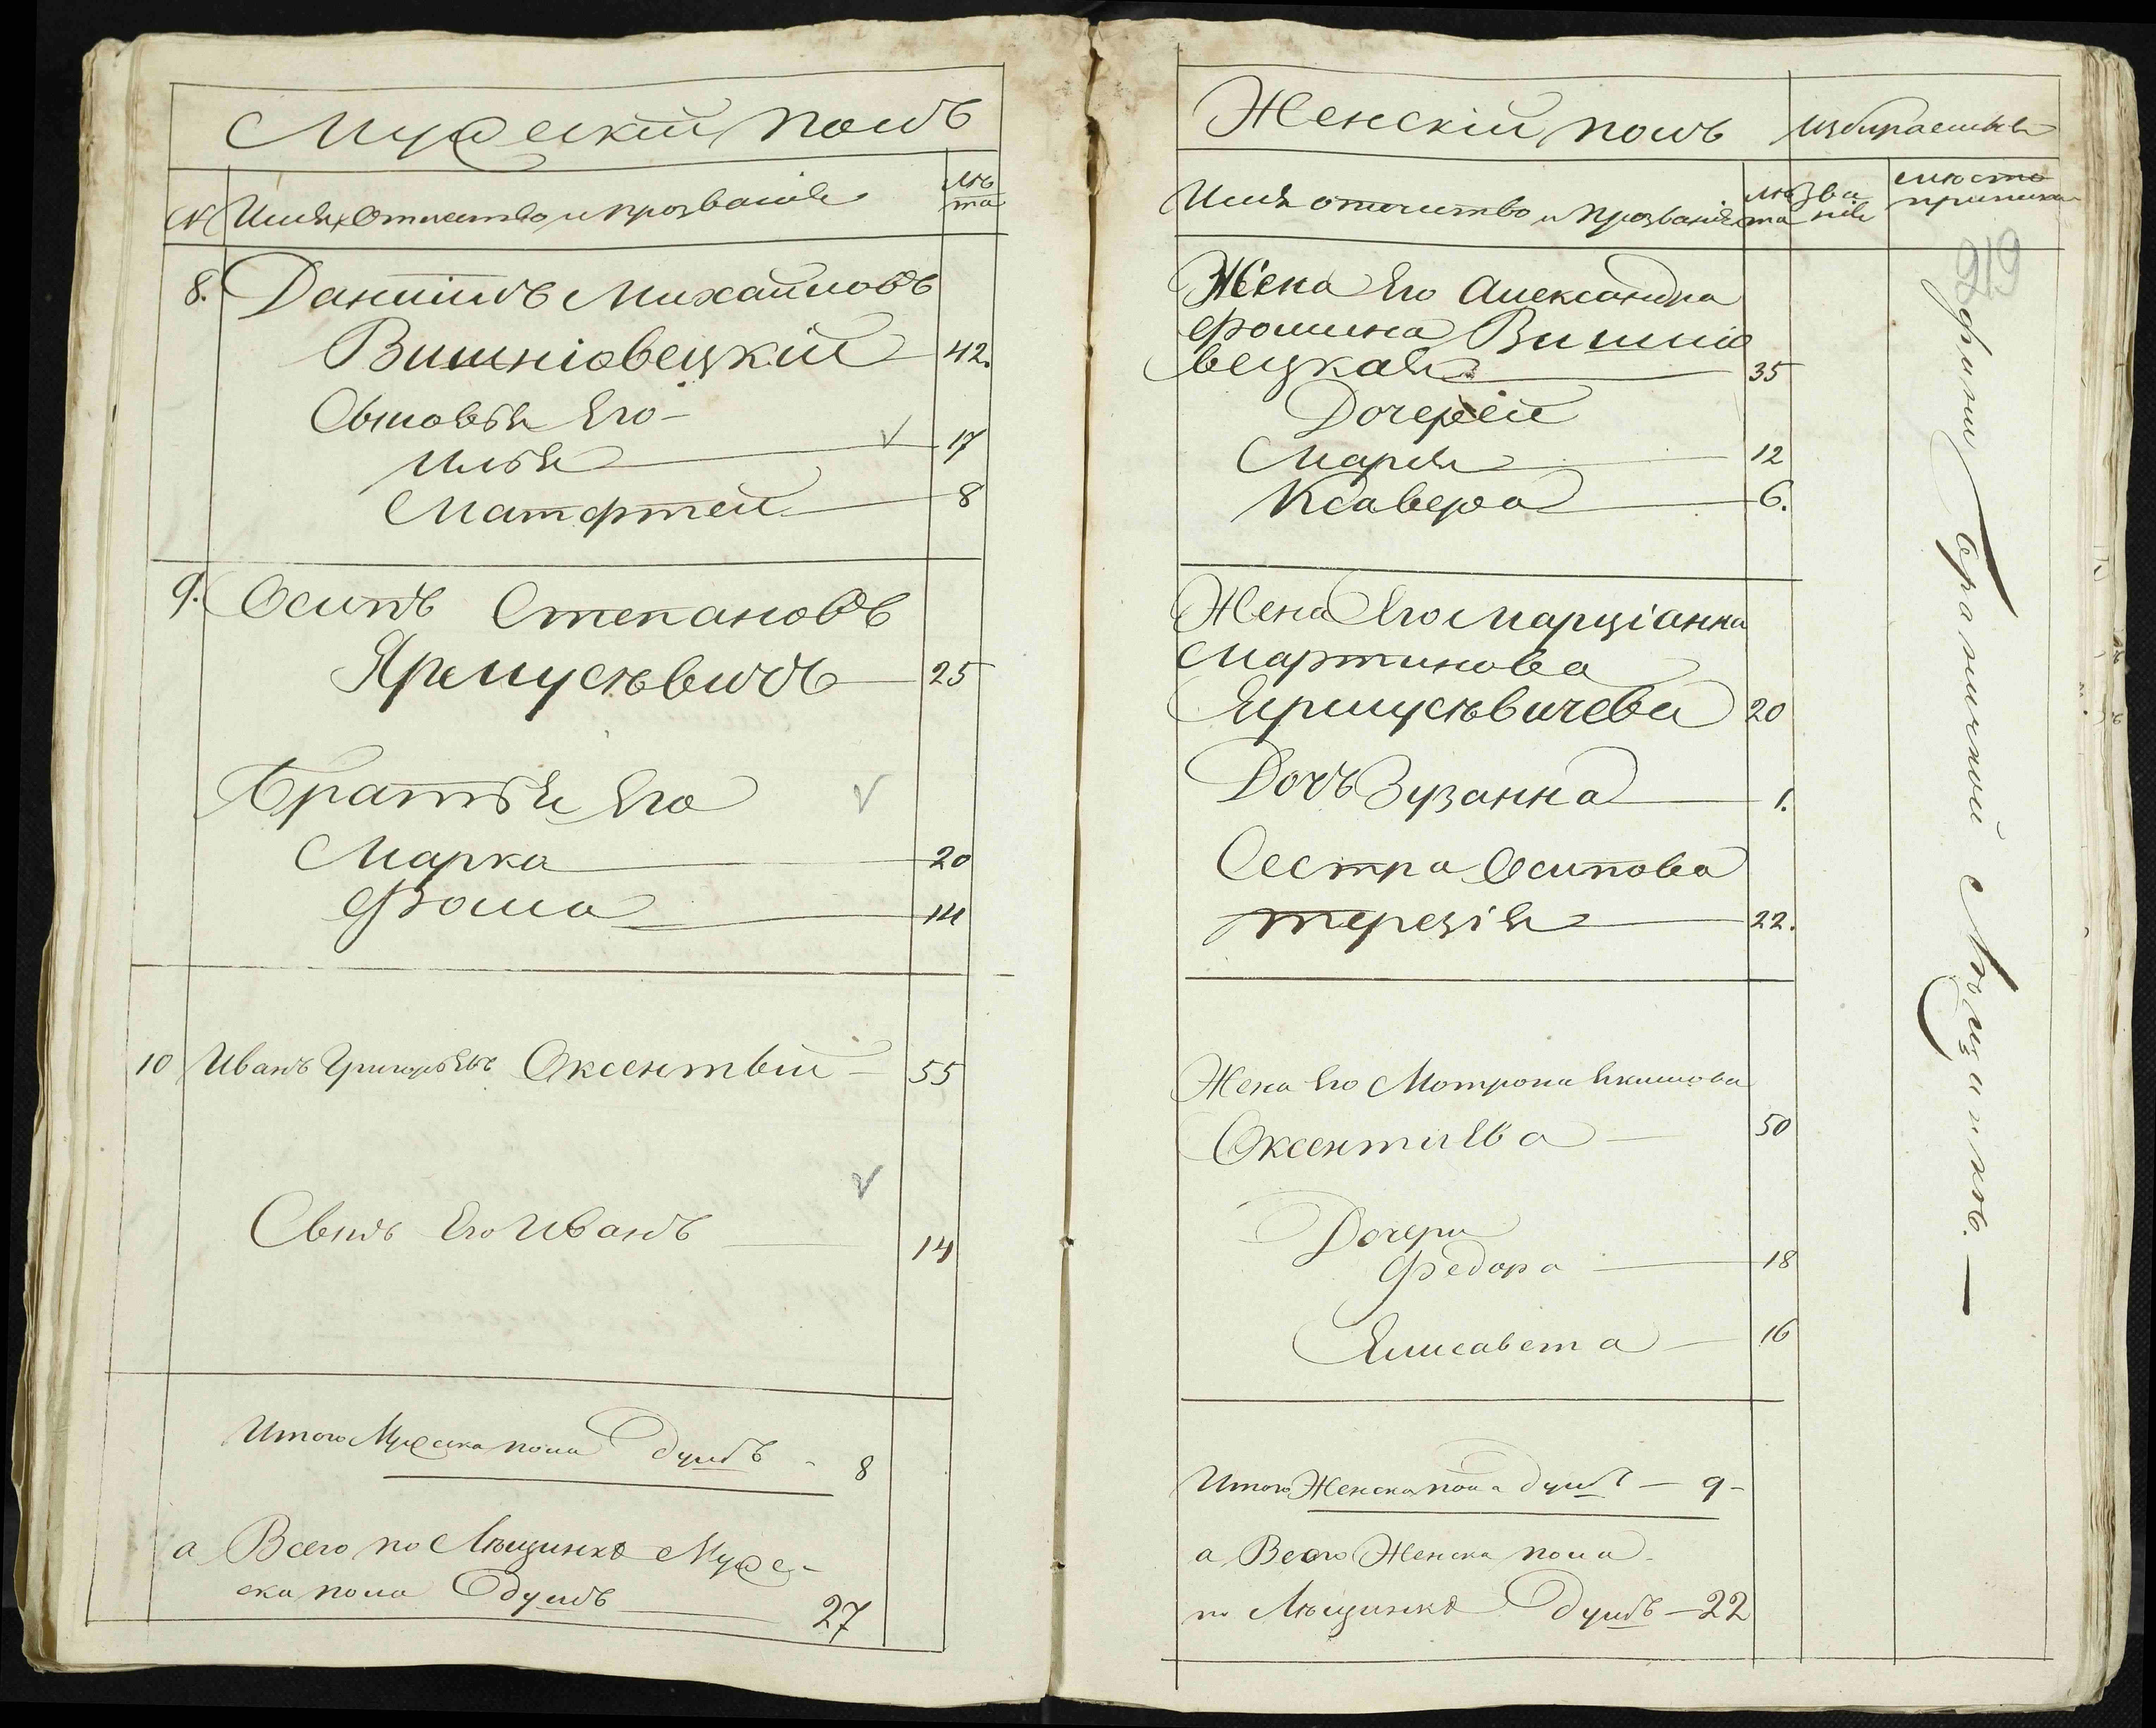 Мужескій полъ
№ Имя, Отчество и прозваніе лѣта
8. Даниилъ Михайловъ
Вишніовецкій 42.
Сыновья Его -
Илья 17
Матфтей 8
9. Осипъ Степановъ
Ярмусѣвичъ 25
Братья Его
Марко 20
Фома 14
10 Иванъ Григорьевъ Оксентьій - 55
Сынъ Его Иванъ 14
Итого Мужеска пола душъ - 8
а Всего по Мѣщинкѣ Муже-
ска пола душъ 27
Женскій полъ избираемыя
Имя отчество и прозваніе лѣта званіе мѣсто приписки
Жена Его Александра
Фомина Вишніо
вецкая 35
Дочерей
Марія 12
Ксавера 6.
Жена Его Марціанна
Мартинова
Ярмусѣвичева 20
Дочъ Зузанна 1.
Сестра Осипова
терезія 22.
Жена Его Мотрона Якимова
Оксентіева 50
Дочери
Федора 18
Елисавета 16
Итого Женска пола душъ - 9 -
а Всего Женска пола
по Мѣщинкѣ душъ - 22